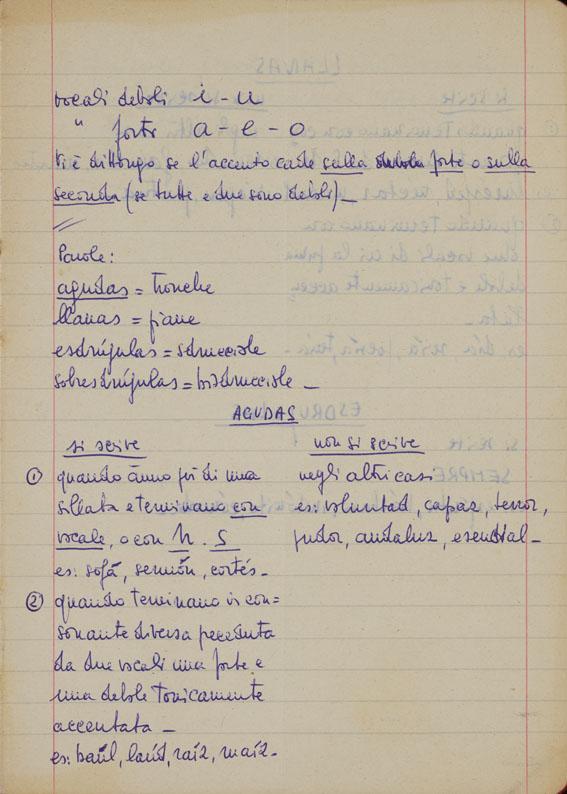 vocali deboli i - u
" forti a - e - o
Vi è dittongo se l'accento cade sulla forte o sulla
seconda (se tutte e due sono deboli) _
Parole:
agudas = tronche
llanas = piane
esdrújulas = sdrucciole
sobresdrújulas = bisdrucciole _
AGUDAS
si scrive
① quando ànno più di una
sillaba e terminano con
vocale, o con n. s
es: sofá, sermón, cortés _
② quando terminano in con=
sonante diversa preceduta
da due vocali una forte e
una debole tonicamente
accentata _
es: baúl, laúd, raíz, maíz _
non si scrive
negli altri casi
es: voluntad, capaz, terror,
pudor, andaluz, esencial _